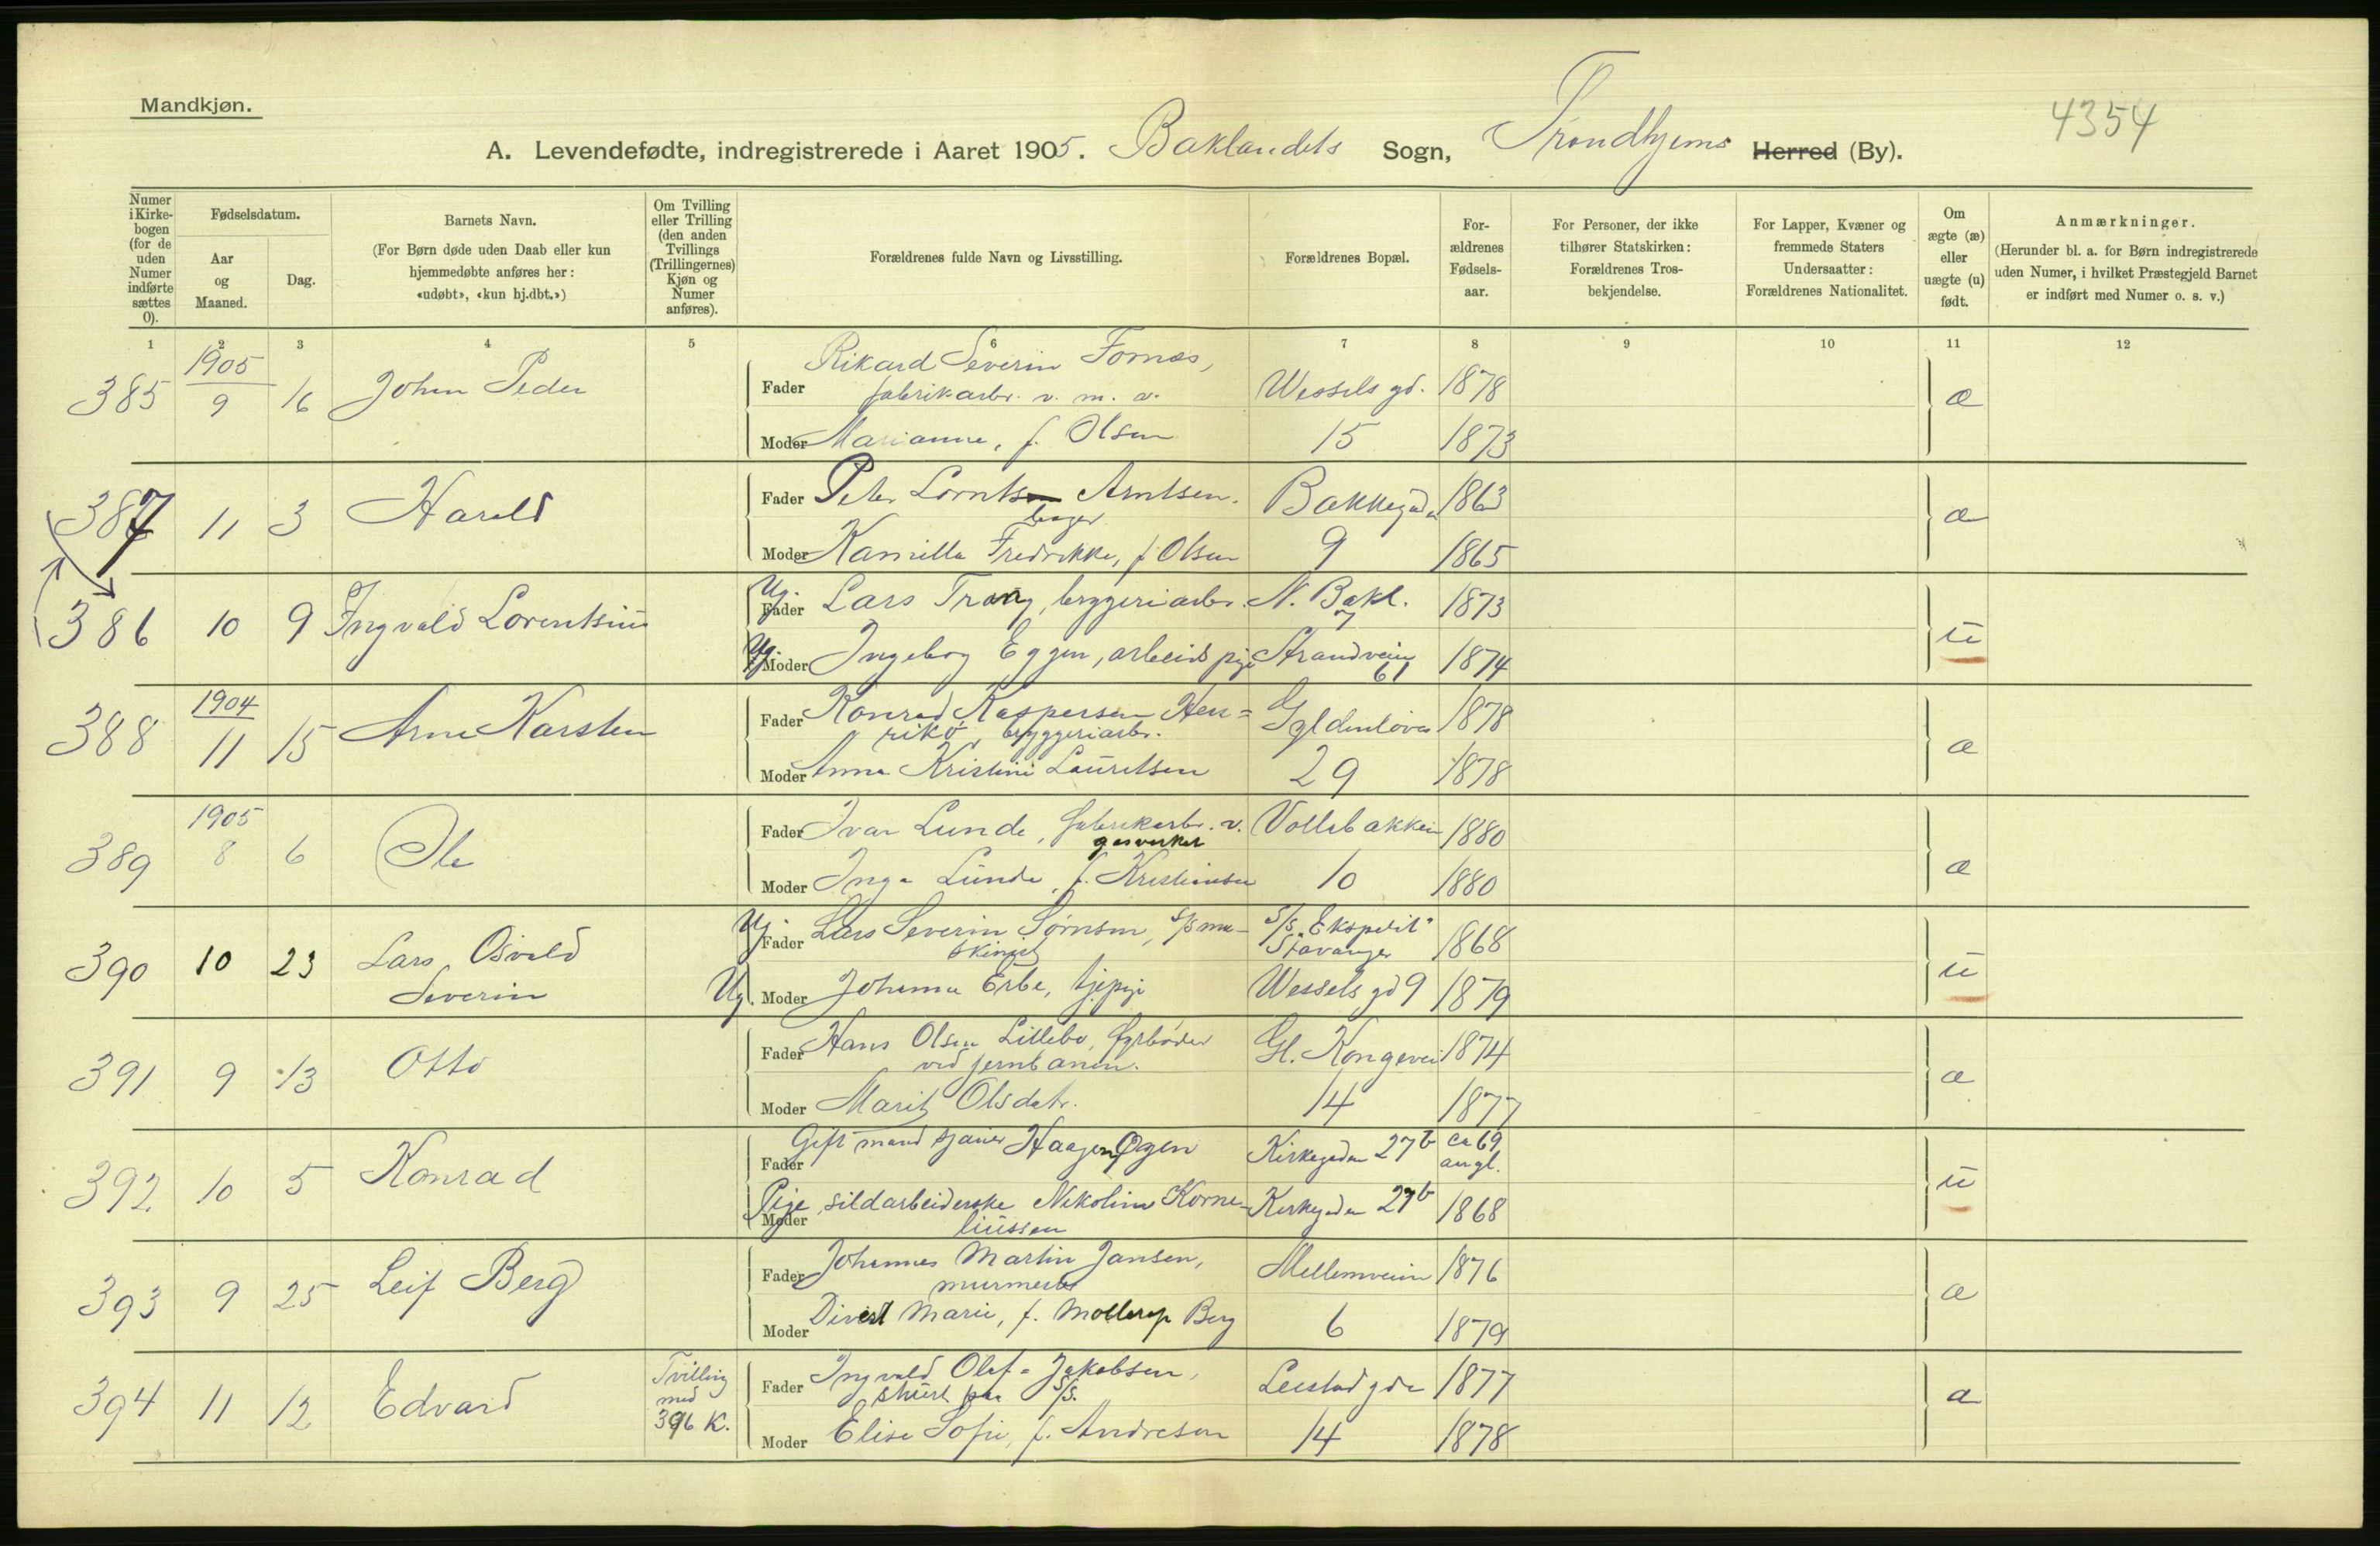 Mandkjøn.
4354
A. Levendefødte, indregistrerede i Aaret 1905. Baklandets Sogn, Trondhjems Herred (By).
Numer i Kirke-bogen (for de uden Numer indførte sættes 0).
Fødselsdatum.
Aar og Maaned.
Dag.
Barnets Navn.
(For Børn døde uden Daab eller kun
hjemmedøbte anføres her:
«udøbt», «kun hj.dbt.»)
Om Tvilling eller Trilling (den anden Tvillings (Trillingernes) Kjøn og Numer anføres).
Forældrenes fulde Navn og Livsstilling.
Forældrenes Bopæl.
For-ældrenes Fødsels-aar.
For Personer, der ikke
tilhører Statskirken:
Forældrenes Tros-
bekjendelse.
For Lapper, Kvæner og
fremmede Staters
Undersaatter:
Forældrenes Nationalitet.
Om ægte (æ) eller uægte (u) født.
Anmærkninger.
(Herunder bl. a. for Børn indregistrerede
uden Numer, i hvilket Præstegjeld Barnet
er indført med Numer o. s. v.)
1 2 3 4 5 6 7 8 9 10 11 12
385 1905 9 16 Johan Peder
Fader Rikard Severin Fornæs, Wessels gd. 1878 æ
fabrikarbr. v. m. a.
Moder Marianne, f. Olsen 15 1873
387 11 3 Harald
Fader Peter Lornts Arntsen. Bakkegaden 1863 æ
Moder Kamilla Fredrikke, f. Olsen 9 1865
386 10 9 Ingvald Lorentsius
Ug. Fader Lars Trøng, bryggeriarbr. N. Bakl. 7 1873 u
Ug. Moder Ingeborg Eggen, arbeidspige Strandveien 61 1874
388 1904 11 15 Arne Karsten
Fader Konrad Kaspersen Hen= Gyldenløves 1878 æ
riksø, bryggeriarbr.
Moder Anna Kristine Lauritsen 29 1878
389 1905 8 6 Ole
Fader Ivar Lunde, fabrikarbr. v. Vollabakken 1880 æ
gasverket
Moder Inga Lunde, f. Kristiansen 10 1880
390 10 23 Lars Osvald
Severin
Ug. Fader Lars Severin Sørnsen, S/S ma- S/S "Ekspedit" 1868 u
skinist Stavanger
Ug. Moder Johanna Erbe, tjepige Wessels gd 9 1879
391 9 13 Otto
Fader Hans Olsen Lillebo, fyrbøder Gl. Kongevei 1874 æ
ved jernbanen.
Moder Marit Olsdatr. 14 1877
392 10 5 Konrad
Fader Gift mand sjauer Haagen Øgen Kirkegaden 27b ca 69 u
angl.
Moder Pige, sildarbeiderske Nikoline Korne- Kirkegaden 27b 1868
liussen
393 9 25 Leif Berg
Fader Johannes Martin Jansen, Mellemveien 1876 æ
murmester
Moder Divert Marie, f. Mollerop Berg 6 1879
394 11 12 Edvard Tvilling
med
396 K.
Fader Ingvald Olaf Jakobsen, Leistadgde 1877 æ
stuert paa S/S.
Moder Elise Sofie, f. Andresen 14 1878